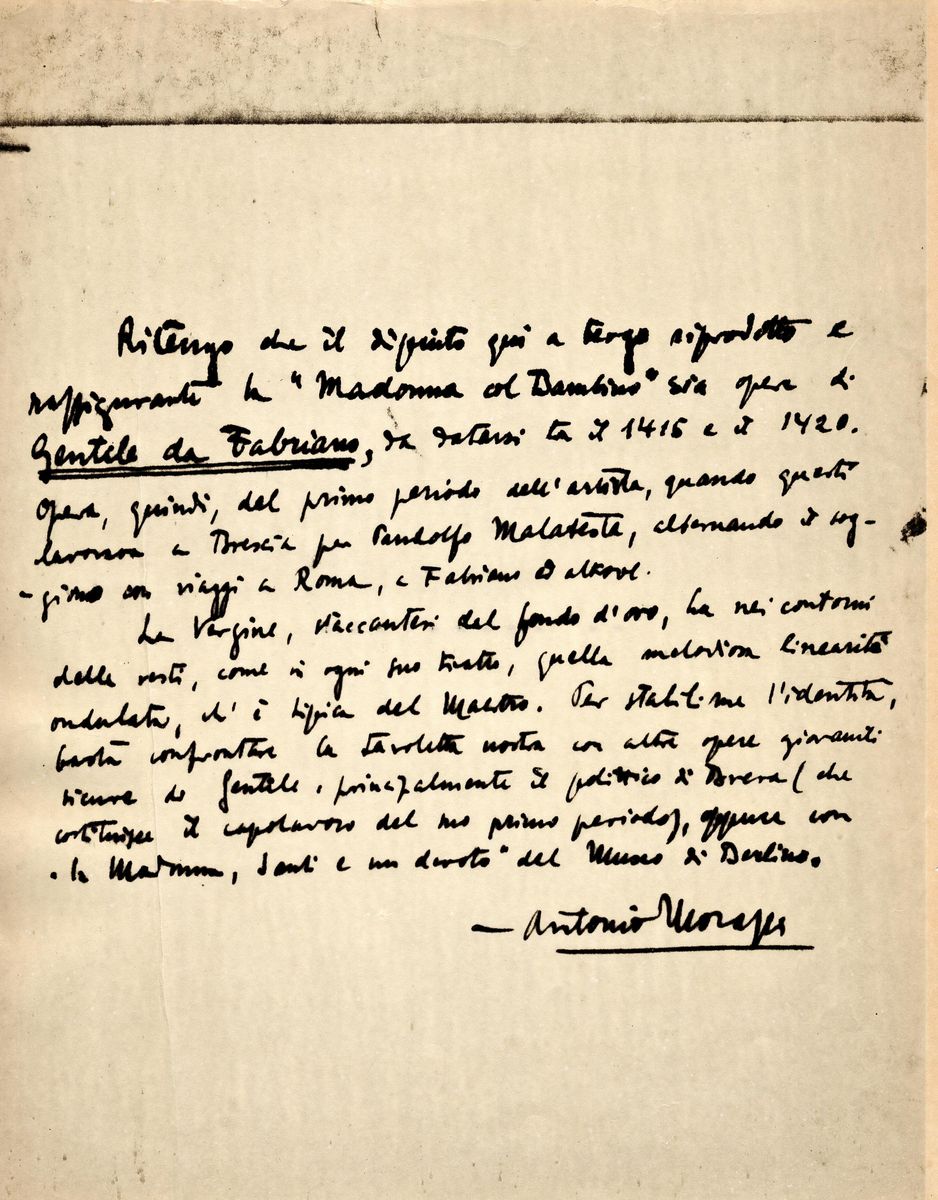 Ritengo che il dipinto qui a tergo riprodotto e
raffigurante la "Madonna col Bambino" sia opera di
Gentile da Fabriano, da datarsi tra il 1415 e il 1420.
Opera, quindi, del primo periodo dell'artista, quando questi
lavorava a Brescia per Pandolfo Malatesta, alternando il sog-
giorno con viaggi a Roma, a Fabriano ed altrove.
La Vergine, staccantesi dal fondo d'oro, ha nei contorni
delle vesti, come in ogni suo tratto, quella melodiosa linearità
ondulata, ch'è tipica del Maestro. Per stabilirne l'identità,
basta confrontare la tavoletta nostra con altre opere giovanili
sicure di Gentile, principalmente il polittico di Brera (che
costituisce il capolavoro del suo primo periodo), oppure con
"la Madonna, Santi e un devoto" del Museo di Berlino.
— Antonio Morassi